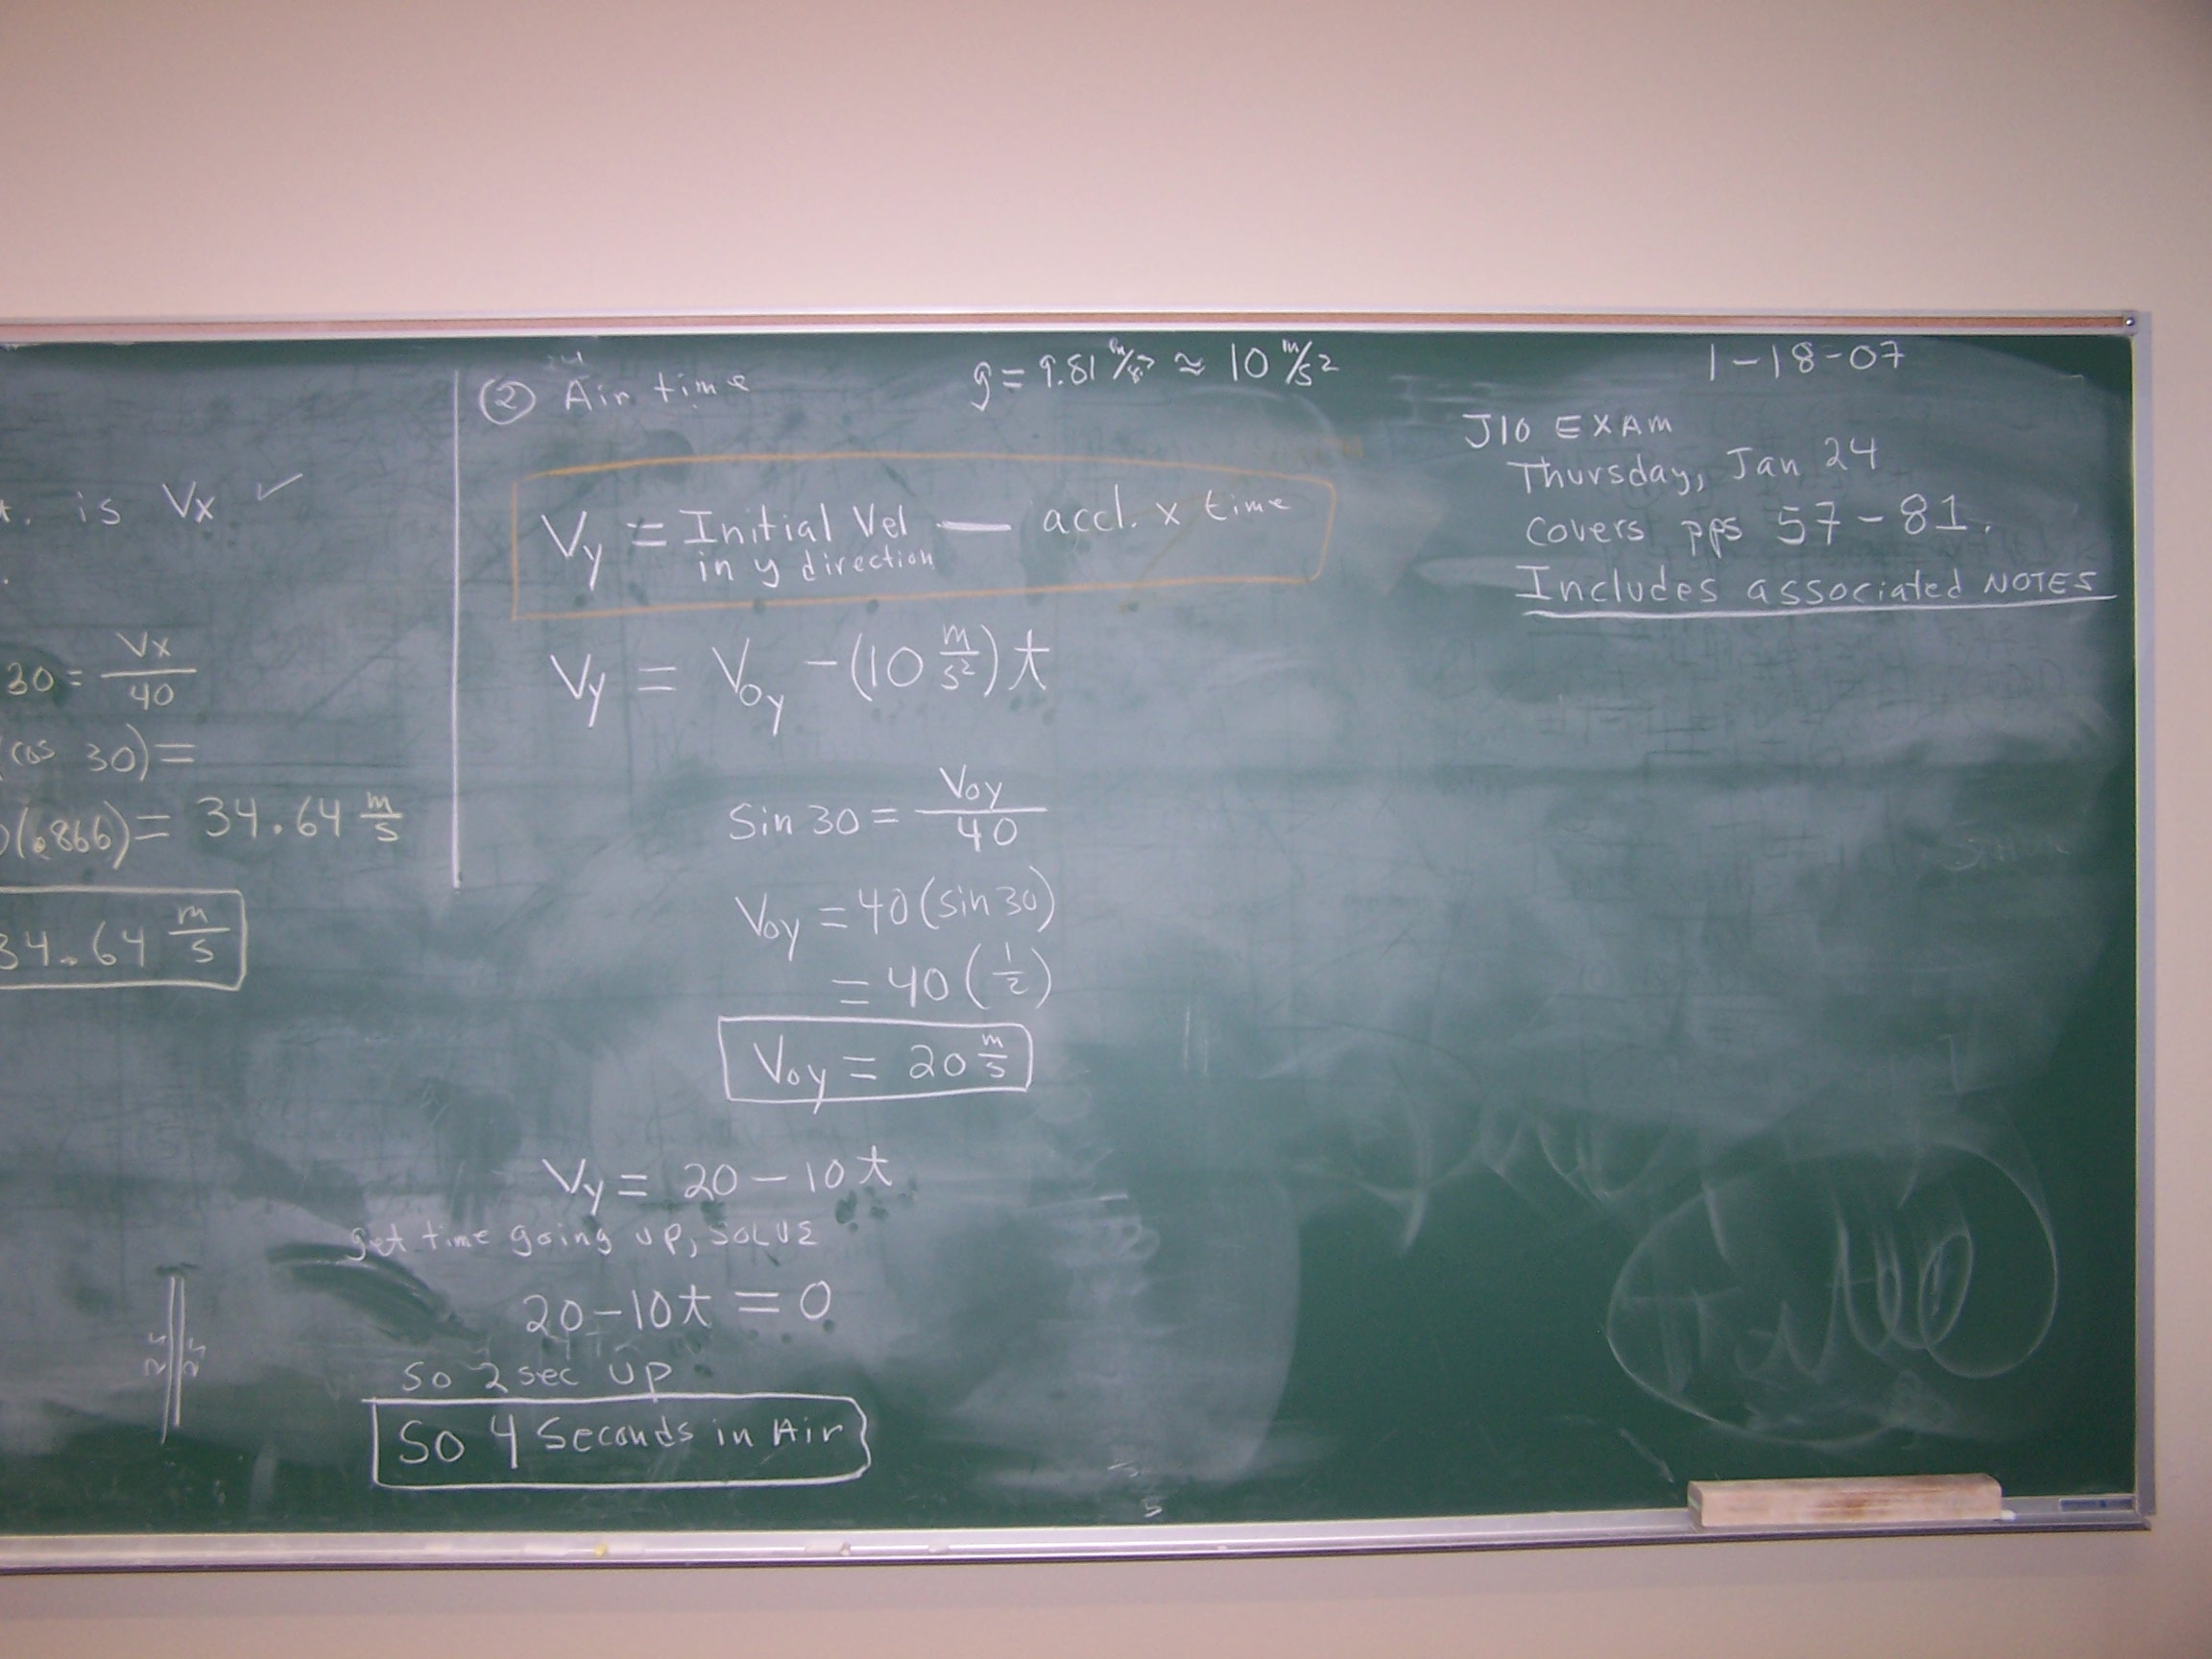 is Vx ✓
30 = Vx/40
(cos 30) =
(.866) = 34.64 m/s
34.64 m/s
② Air time
g = 9.81 m/s² ≈ 10 m/s²
Vy = Initial Vel in y direction — accl. x time
Vy = Voy - (10 m/s²) t
Sin 30 = Voy/40
Voy = 40 (sin 30)
= 40 (1/2)
Voy = 20 m/s
Vy = 20 - 10t
get time going up, SOLVE
20 - 10t = 0
So 2 sec up
So 4 Seconds in Air
1-18-07
J10 EXAM
Thursday, Jan 24
covers pps 57-81.
Includes associated NOTES